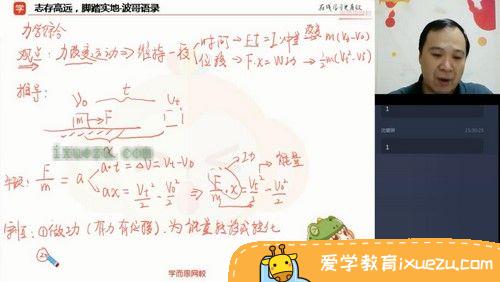 志存高远，脚踏实地·波哥语录
力学综合
观点：力改变运动⇒维持一段
时间→Ft=I冲量 m(Vt-V0)
位移→F·x=W功→½m(Vt²-V0²)
推导：
V0 t Vt
m→F
x
ixuezu.com
F/m=a
a·t=ΔV=Vt-V0
ax=Vt²/2-V0²/2 ⇒ F/m·x=Vt²/2-V0²/2
功 能量
①做功（有力有位移）.为能量转移或转化
②
1
15:30:25
1
学而思网校
爱学教育ixuezu.com